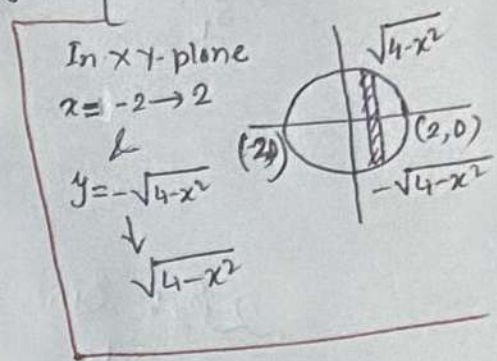 In xy-plane
x = -2 → 2
&
y = -√(4-x²)
↓
√(4-x²)
√(4-x²)
(-2,0)
(2,0)
-√(4-x²)